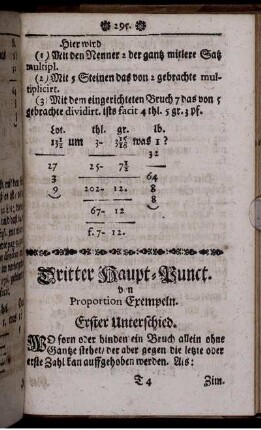 295.
Hier wird
(1) Mit den Nenner 2 der gantz mitlere Satz
multipl.
(2) Mit 5 Steinen das von 2 gebrachte mul-
tiplicirt.
(3) Mit dem eingerichteten Bruch 7 das von 5
gebrachte dividirt. ists facit 4 thl. 5 gr. 3 pf.
Lot. thl. gr. lb.
um 3- was 1?
32
27 25- 7½
3 64
9 202- 12. 8
8
67- 12
f. 7- 12.
Dritter Haupt-Punct.
vn
Proportion Exempeln.
Erster Unterschied.
WO forn oder hinden ein Bruch allein ohne
Gantze stehet/ der aber gegen die letzte oder
erste Zahl kan auffgehoben werden. Als:
T 4 Zim.